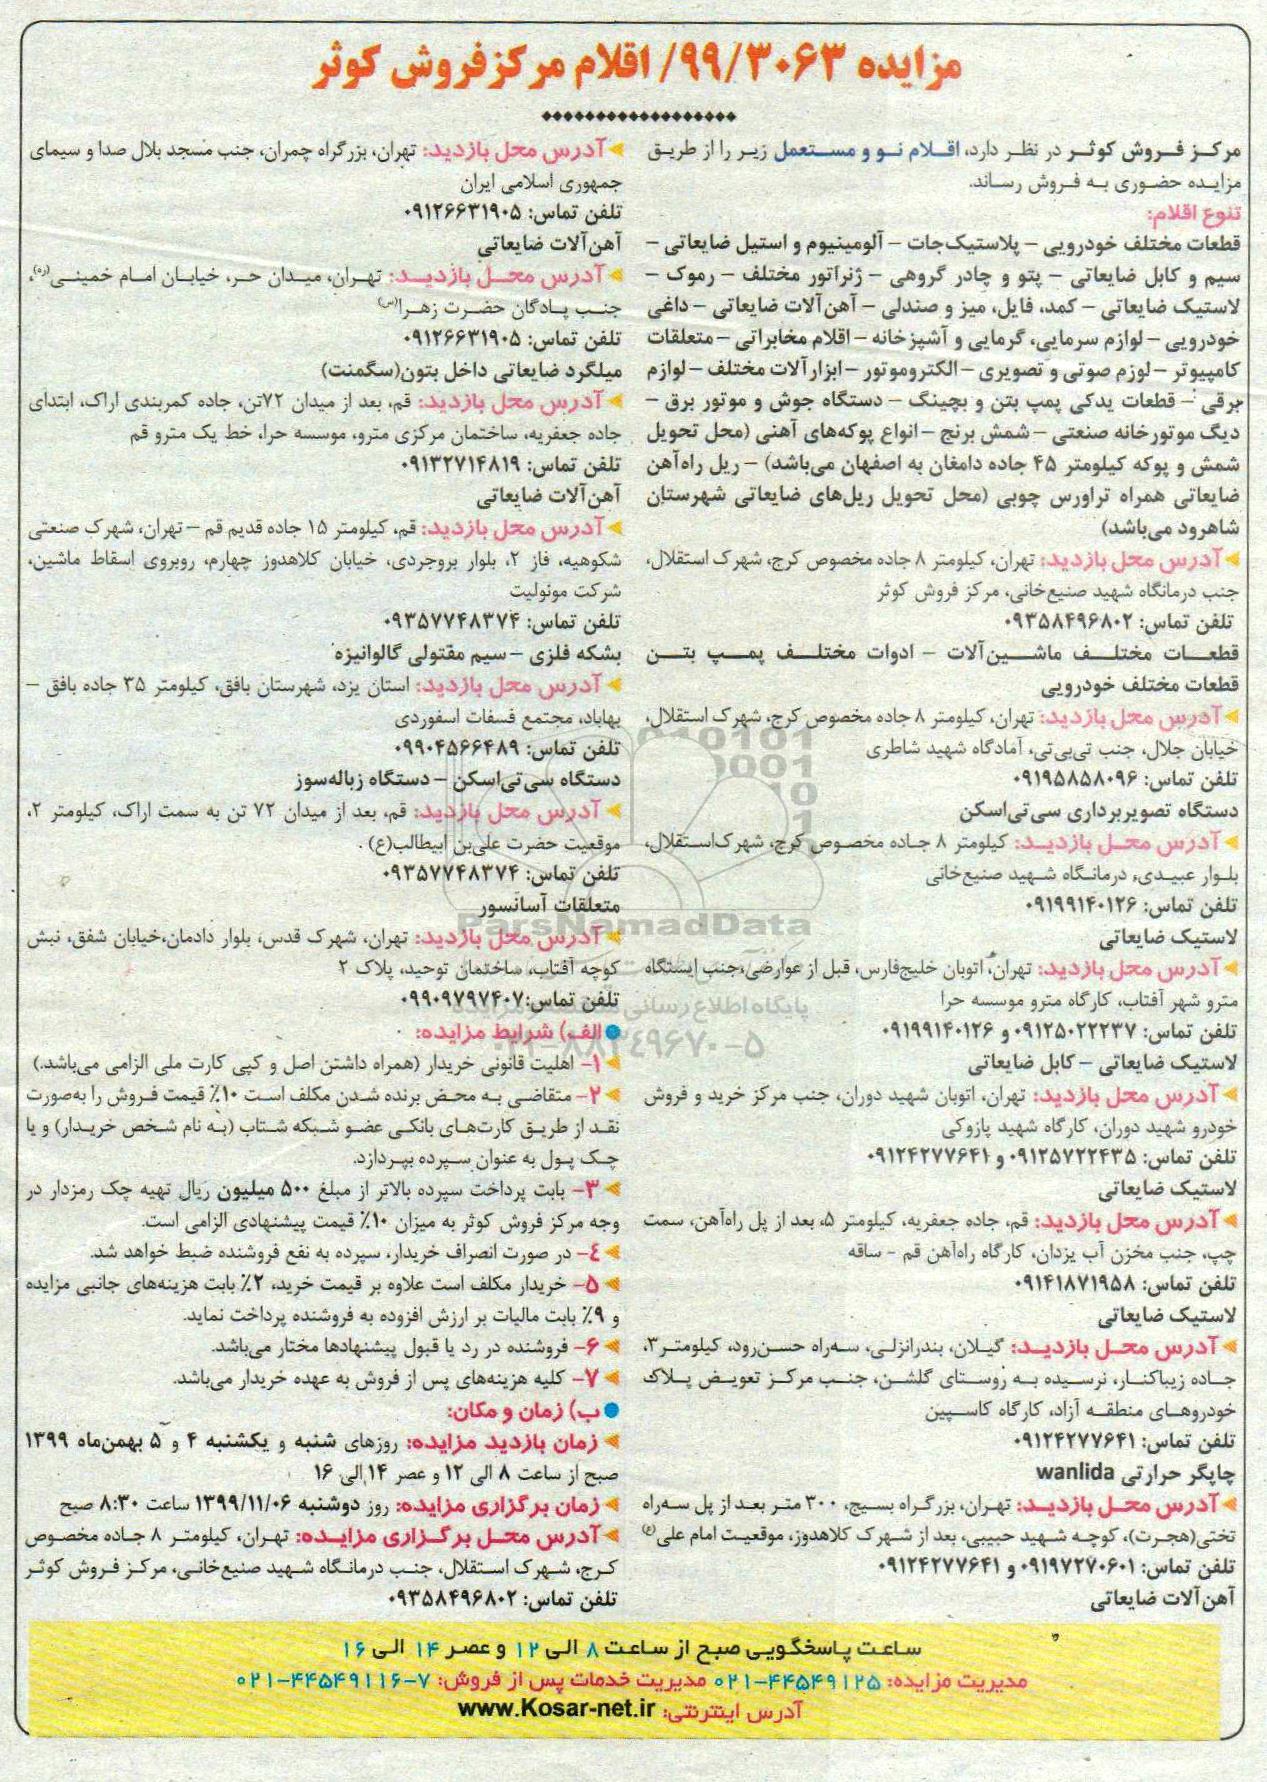 مزایده ۹۹/۳۰۶۳/ اقلام مرکز فروش کوثر
مرکز فروش کوثر در نظر دارد، اقلام نو و مستعمل زیر را از طریق
مزایده حضوری به فروش رساند.
تنوع اقلام:
قطعات مختلف خودرویی – پلاستیک‌جات – آلومینیوم و استیل ضایعاتی –
سیم و کابل ضایعاتی – پتو و چادر گروهی – ژنراتور مختلف – رموک –
لاستیک ضایعاتی – کمد، فایل، میز و صندلی – آهن‌آلات ضایعاتی – داغی
خودرویی – لوازم سرمایی، گرمایی و آشپزخانه – اقلام مخابراتی – متعلقات
کامپیوتر – لوزم صوتی و تصویری – الکتروموتور – ابزارآلات مختلف – لوازم
برقی – قطعات یدکی پمپ بتن و بچینگ – دستگاه جوش و موتور برق –
دیگ موتورخانه صنعتی – شمش برنج – انواع پوکه‌های آهنی (محل تحویل
شمش و پوکه کیلومتر ۴۵ جاده دامغان به اصفهان می‌باشد) – ریل راه‌آهن
ضایعاتی همراه تراورس چوبی (محل تحویل ریل‌های ضایعاتی شهرستان
شاهرود می‌باشد)
آدرس محل بازدید: تهران، کیلومتر ۸ جاده مخصوص کرج، شهرک استقلال،
جنب درمانگاه شهید صنیع‌خانی، مرکز فروش کوثر
تلفن تماس: ۰۹۳۵۸۴۹۶۸۰۲
قطعات مختلف ماشین‌آلات – ادوات مختلف پمپ بتن
قطعات مختلف خودرویی
آدرس محل بازدید: تهران، کیلومتر ۸ جاده مخصوص کرج، شهرک استقلال،
خیابان جلال، جنب تی‌بی‌تی، آمادگاه شهید شاطری
تلفن تماس: ۰۹۱۹۵۸۵۸۰۹۶
دستگاه تصویربرداری سی‌تی‌اسکن
آدرس محل بازدید: کیلومتر ۸ جاده مخصوص کرج، شهرک‌استقلال،
بلوار عبیدی، درمانگاه شهید صنیع‌خانی
تلفن تماس: ۰۹۱۹۹۱۴۰۱۲۶
لاستیک ضایعاتی
آدرس محل بازدید: تهران، اتوبان خلیج‌فارس، قبل از عوارضی، جنب ایستگاه
مترو شهر آفتاب، کارگاه مترو موسسه حرا
تلفن تماس: ۰۹۱۲۵۰۲۲۲۳۷ و ۰۹۱۹۹۱۴۰۱۲۶
لاستیک ضایعاتی – کابل ضایعاتی
آدرس محل بازدید: تهران، اتوبان شهید دوران، جنب مرکز خرید و فروش
خودرو شهید دوران، کارگاه شهید پازوکی
تلفن تماس: ۰۹۱۲۵۷۲۲۴۳۵ و ۰۹۱۲۴۲۷۷۶۴۱
لاستیک ضایعاتی
آدرس محل بازدید: قم، جاده جعفریه، کیلومتر ۵، بعد از پل راه‌آهن، سمت
چپ، جنب مخزن آب یزدان، کارگاه راه‌آهن قم - ساقه
تلفن تماس: ۰۹۱۴۱۸۷۱۹۵۸
لاستیک ضایعاتی
آدرس محل بازدید: گیلان، بندرانزلی، سه‌راه حسن‌رود، کیلومتر۳،
جاده زیباکنار، نرسیده به روستای گلشن، جنب مرکز تعویض پلاک
خودروهای منطقه آزاد، کارگاه کاسپین
تلفن تماس: ۰۹۱۲۴۲۷۷۶۴۱
چاپگر حرارتی wanlida
آدرس محل بازدید: تهران، بزرگراه بسیج، ۳۰۰ متر بعد از پل سه‌راه
تختی(هجرت)، کوچه شهید حبیبی، بعد از شهرک کلاهدوز، موقعیت امام علی(ع)
تلفن تماس: ۰۹۱۹۷۲۷۰۶۰۱ و ۰۹۱۲۴۲۷۷۶۴۱
آهن‌آلات ضایعاتی
آدرس محل بازدید: تهران، بزرگراه چمران، جنب مسجد بلال صدا و سیمای
جمهوری اسلامی ایران
تلفن تماس: ۰۹۱۲۶۶۳۱۹۰۵
آهن‌آلات ضایعاتی
آدرس محل بازدید: تهران، میدان حر، خیابان امام خمینی(ره)،
جنب پادگان حضرت زهرا(س)
تلفن تماس: ۰۹۱۲۶۶۳۱۹۰۵
میلگرد ضایعاتی داخل بتون(سگمنت)
آدرس محل بازدید: قم، بعد از میدان ۷۲تن، جاده کمربندی اراک، ابتدای
جاده جعفریه، ساختمان مرکزی مترو، موسسه حرا، خط یک مترو قم
تلفن تماس: ۰۹۱۳۲۷۱۴۸۱۹
آهن‌آلات ضایعاتی
آدرس محل بازدید: قم، کیلومتر ۱۵ جاده قدیم قم – تهران، شهرک صنعتی
شکوهیه، فاز ۲، بلوار بروجردی، خیابان کلاهدوز چهارم، روبروی اسقاط ماشین،
شرکت مونولیت
تلفن تماس: ۰۹۳۵۷۷۴۸۳۷۴
بشکه فلزی – سیم مفتولی گالوانیزه
آدرس محل بازدید: استان یزد، شهرستان بافق، کیلومتر ۳۵ جاده بافق –
بهاباد، مجتمع فسفات اسفوردی
تلفن تماس: ۰۹۹۰۴۵۶۶۴۸۹
دستگاه سی‌تی‌اسکن – دستگاه زباله‌سوز
آدرس محل بازدید: قم، بعد از میدان ۷۲ تن به سمت اراک، کیلومتر ۲،
موقعیت حضرت علی‌بن ابیطالب(ع) .
تلفن تماس: ۰۹۳۵۷۷۴۸۳۷۴
متعلقات آسانسور
آدرس محل بازدید: تهران، شهرک قدس، بلوار دادمان،خیابان شفق، نبش
کوچه آفتاب، ساختمان توحید، پلاک ۲
تلفن تماس: ۰۹۹۰۹۷۹۷۴۰۷
الف) شرایط مزایده:
۱– اهلیت قانونی خریدار (همراه داشتن اصل و کپی کارت ملی الزامی می‌باشد.)
۲– متقاضی به محض برنده شدن مکلف است ۱۰٪ قیمت فروش را به‌صورت
نقد از طریق کارت‌های بانکی عضو شبکه شتاب (به نام شخص خریدار) و یا
چک پول به عنوان سپرده بپردازد.
۳– بابت پرداخت سپرده بالاتر از مبلغ ۵۰۰ میلیون ریال تهیه چک رمزدار در
وجه مرکز فروش کوثر به میزان ۱۰٪ قیمت پیشنهادی الزامی است.
۴– در صورت انصراف خریدار، سپرده به نفع فروشنده ضبط خواهد شد.
۵– خریدار مکلف است علاوه بر قیمت خرید، ۲٪ بابت هزینه‌های جانبی مزایده
و ۹٪ بابت مالیات بر ارزش افزوده به فروشنده پرداخت نماید.
۶– فروشنده در رد یا قبول پیشنهادها مختار می‌باشد.
۷– کلیه هزینه‌های پس از فروش به عهده خریدار می‌باشد.
ب) زمان و مکان:
زمان بازدید مزایده: روزهای شنبه و یکشنبه ۴ و ۵ بهمن‌ماه ۱۳۹۹
صبح از ساعت ۸ الی ۱۲ و عصر ۱۴ الی ۱۶
زمان برگزاری مزایده: روز دوشنبه ۱۳۹۹/۱۱/۰۶ ساعت ۸:۳۰ صبح
آدرس محل برگزاری مزایده: تهران، کیلومتر ۸ جاده مخصوص
کرج، شهرک استقلال، جنب درمانگاه شهید صنیع‌خانی، مرکز فروش کوثر
تلفن تماس: ۰۹۳۵۸۴۹۶۸۰۲
ساعت پاسخگویی صبح از ساعت ۸ الی ۱۲ و عصر ۱۴ الی ۱۶
مدیریت مزایده: ۰۲۱-۴۴۵۴۹۱۲۵ مدیریت خدمات پس از فروش: ۷-۰۲۱-۴۴۵۴۹۱۱۶
آدرس اینترنتی: www.Kosar-net.ir
ParsNamadData
۰۲۱-۸۸۳۴۹۶۷۰-۵